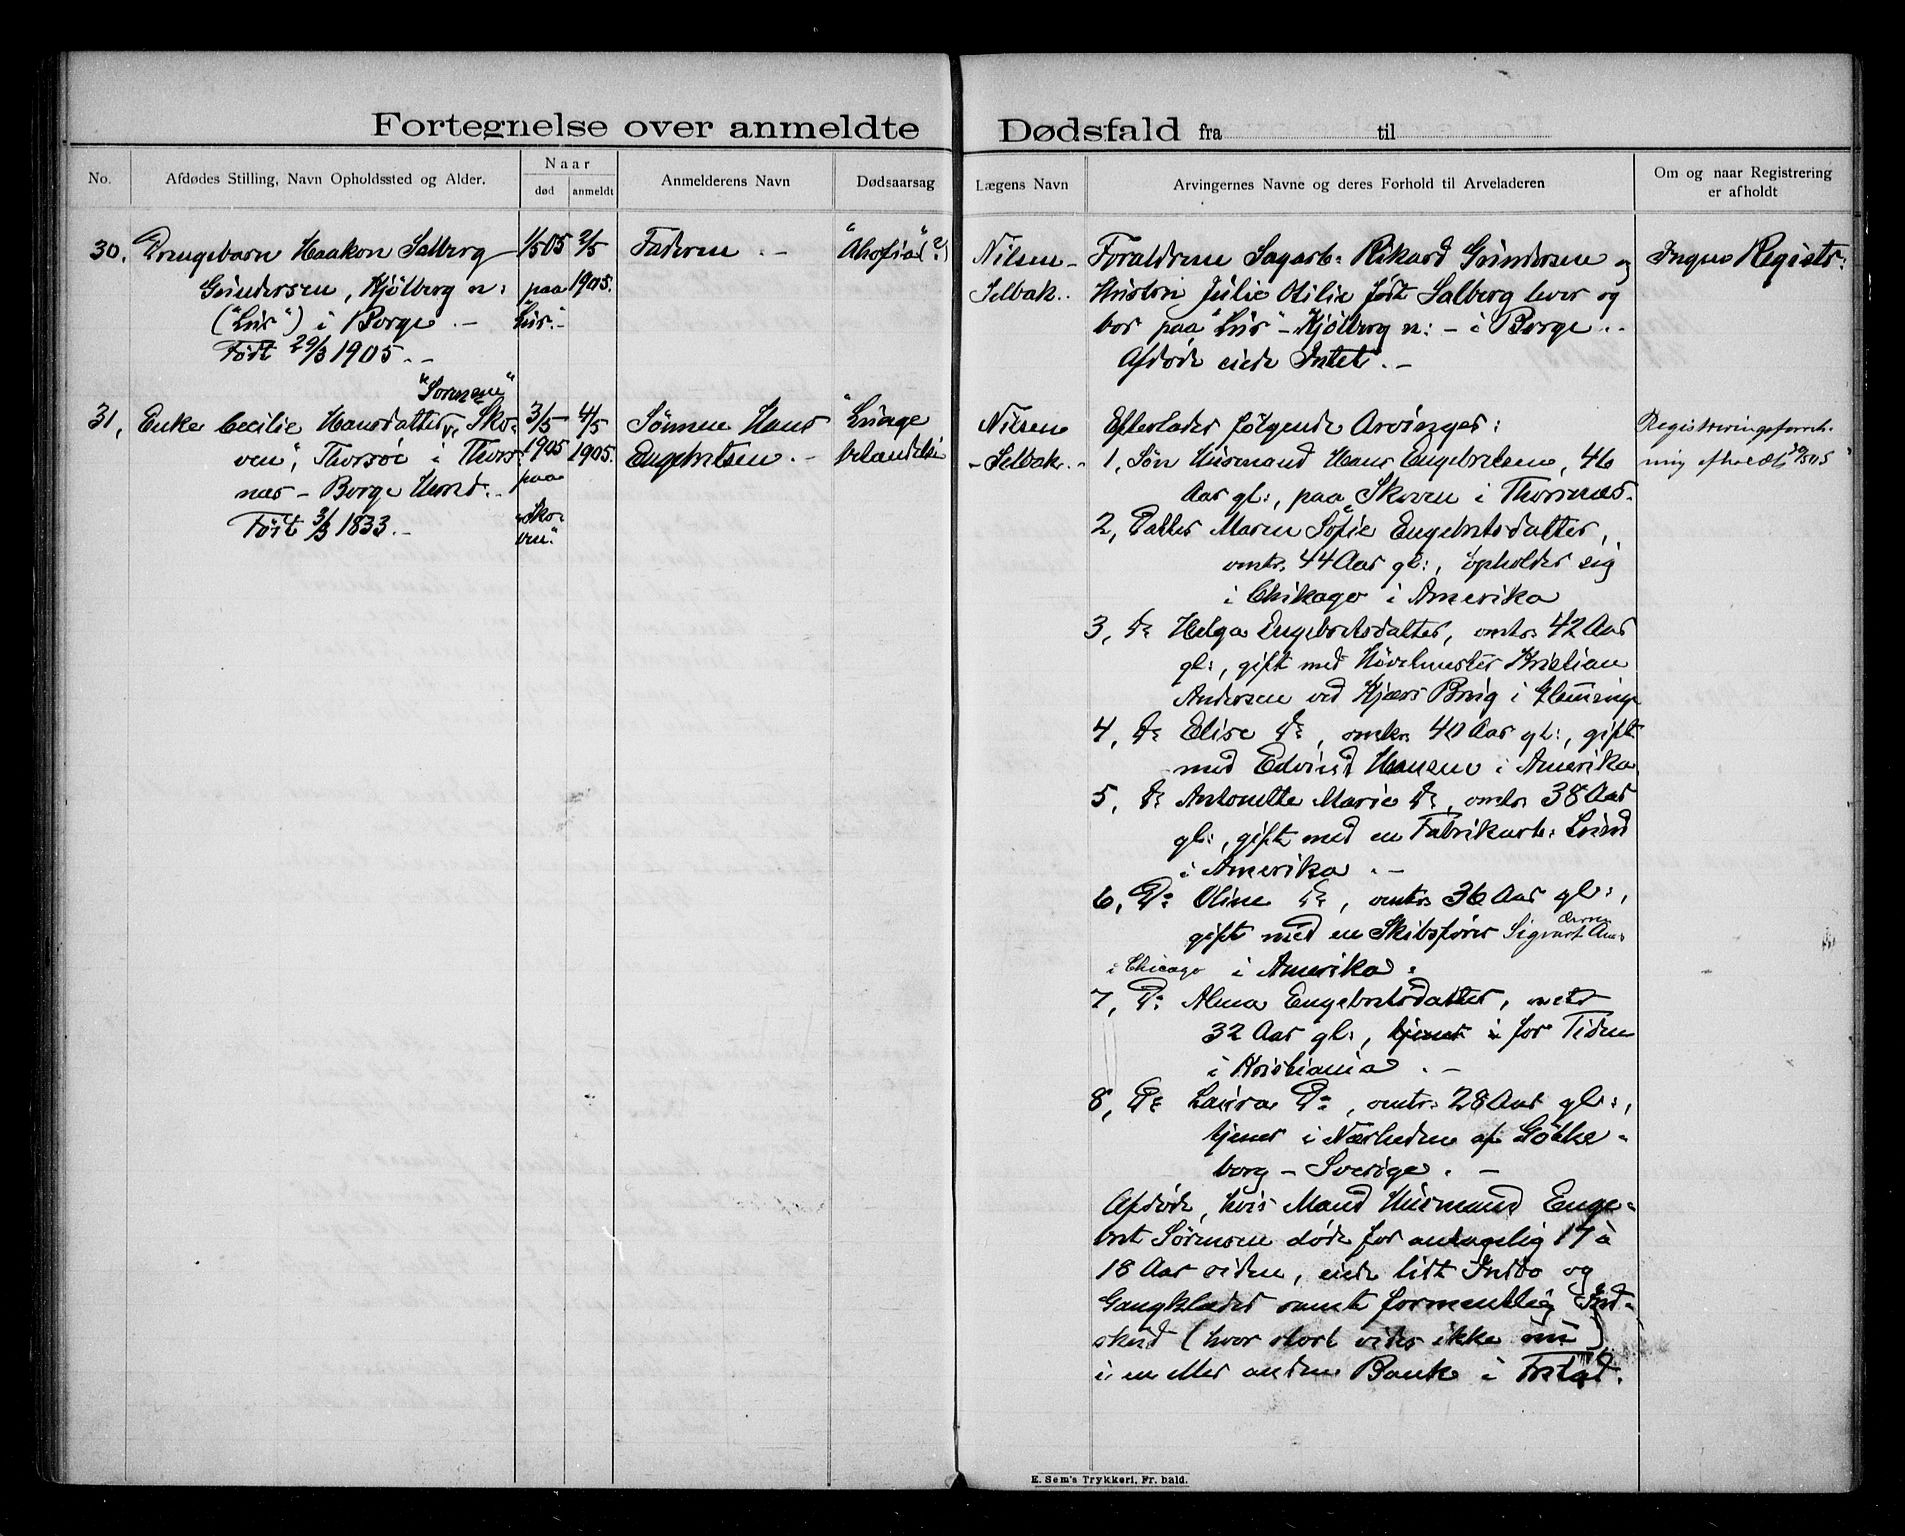 Fortegnelse over anmeldte Dødsfald fra til
No.
Afdødes Stilling, Navn Opholdssted og Alder.
Naar
død
anmeldt
Anmelderens Navn
Dødsaarsag
Lægens Navn
Arvingernes Navne og deres Forhold til Arveladeren
Om og naar Registrering
er afholdt
30.
Drengebarn Haakon Salberg
Gundersen, Kjølberg n:
("Lur") i Borge. -
Født 29/3 1905. -
1/5 05
paa
"Lur". -
2/5
1905.
Faderen. -
"Atrofia" (?)
Nilsen -
Selbak. .
Forældrene Sagarb: Rikard Gundersen og
Hustru Julie Otilie født Salberg lever og
bor paa "Lur" - Kjølberg n: - i Borge. .
Afdøde eiede Intet. -
Ingen Registr:
31,
Enke Cecilie Hansdatter, "Sko-
ven", Thorsø i Thors-
næs - Borge Herred. -
Født 3/3 1833. -
3/5 -
1905
paa
"Sko-
ven".
4/5
1905.
Sønnen Hans
Engebretsen. -
"Lunge
betændelse
Nilsen
- Selbak. .
Efterlader følgende Arvinger:
1, Søn Husmand Hans Engebretsen, 46
Aar gl:, paa Skoven i Thorsnæs.
2, Datter Maren Sofie Engebretsdatter,
omtr. 44 Aar gl:, opholder sig
i Chikago i Amerika
3, Do Helga Engebretsdatter, omtr. 42 Aar
gl:, gift med Høvelmester Kristian
Andersen ved Kjærs Brug i Glemminge
4, Do Elise Do, omtr. 40 Aar gl:, gift
med Edvind Hansen i Amerika
5, Do Antonette Marie Do, omtr. 38 Aar
gl:, gift med en Fabrikarb: Lund
i Amerika. -
6, Do Oline Do, omtr. 36 Aar gl:,
gift med en Skibsfører Sigvart
i Chicago i Amerika.
7, Do Alma Engebretsdatter, omtr
32 Aar gl:, tjener i for Tiden
i Kristiania. -
8, Do Laura Do, omtr. 28 Aar gl:,
tjener i Nærheden af Gøthe-
borg - Sverige. -
Afdøde, hvis Mand Husmand Enge-
bret Sørensen døde for antagelig 17 à
18 Aar siden, eiede lidt Indbo og
Gangklæder samt formentlig Ind-
skud (hvor stort vides ikke nu)
i en eller anden Bank i Frstad.
Registreringsforret-
ning afholdt 10/5 05
E. Sem's Trykkeri, Fr. hald.